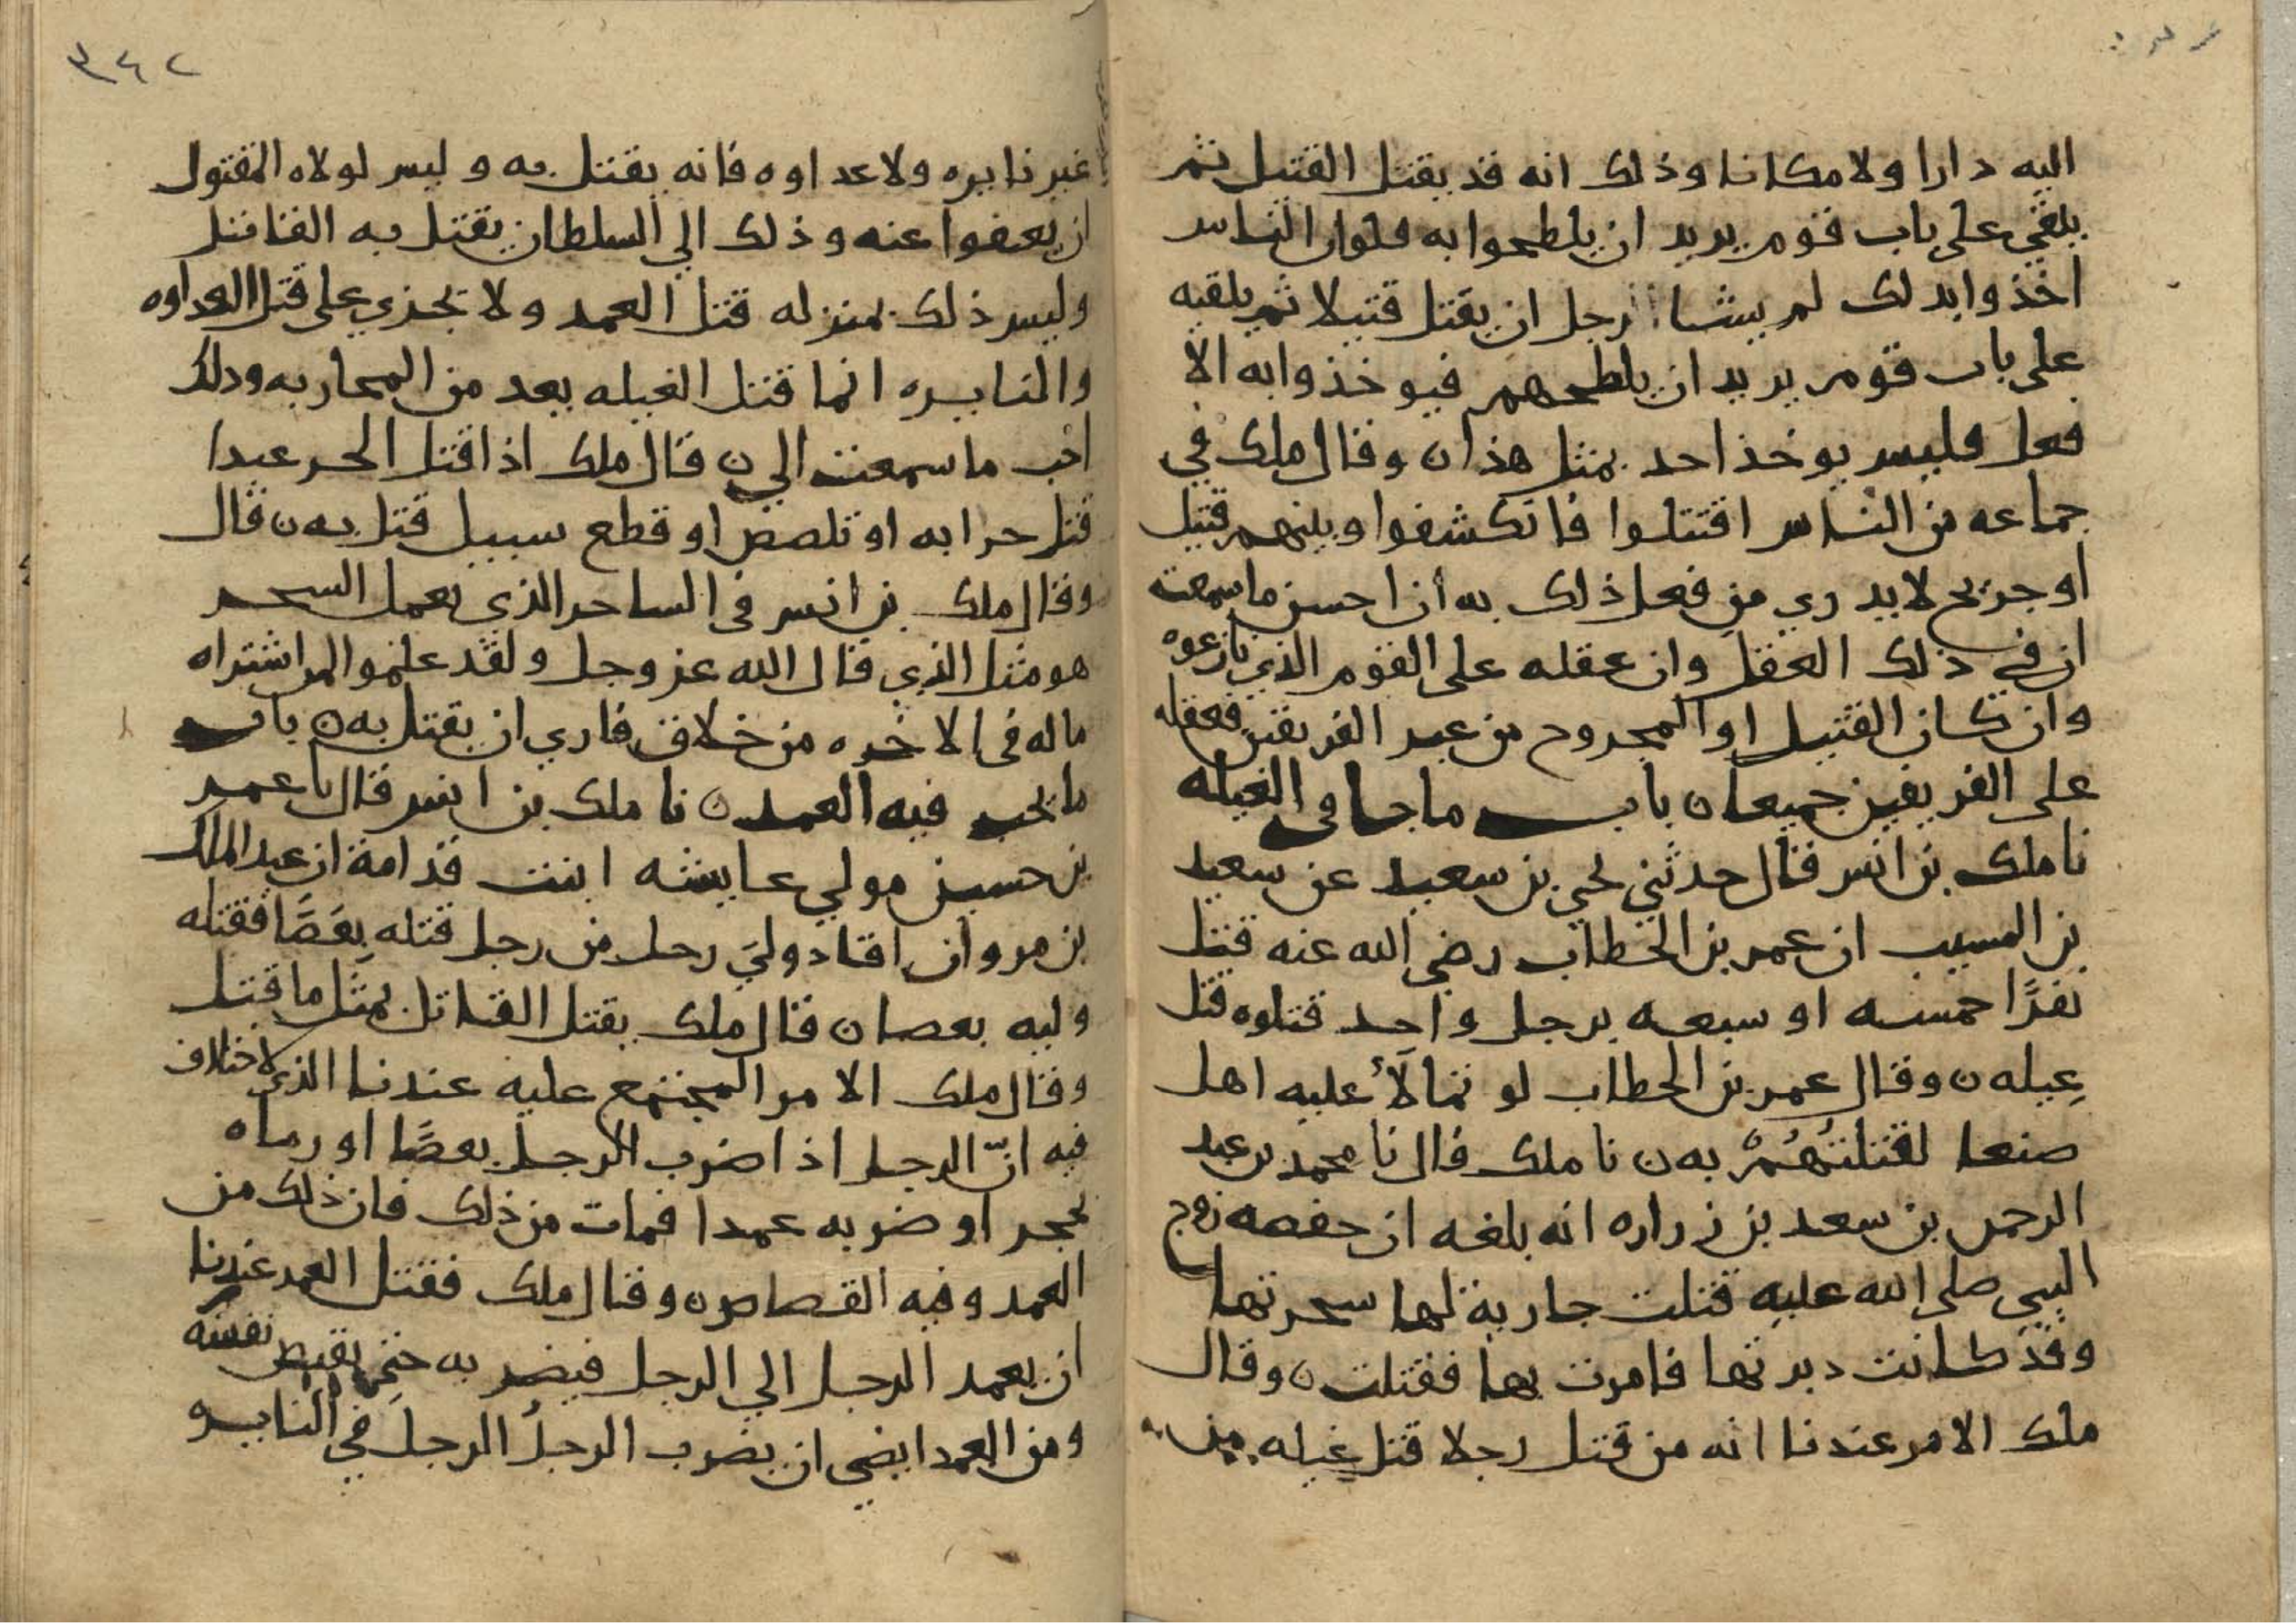 اليه دارا ولا مكانا وذلك انه قد يقتل القتيل ثم
يلقي على باب قوم يريد ان يلطحوا به فلوان الناس
اخذوا بذلك لم يشا رجل ان يقتل قتيلا ثم يلقيه
على باب قوم يريد ان يلطحهم فيوخذوا به الا
فعل فليس يوخذ احد بمثل هذا ن وقال ملك في
جماعه من الناس اقتتلوا فانكشفوا وبينهم قتيل
او جريح لا يدري من فعل ذلك به ان احسن ما سمعت
ان في ذلك العقل وان عقله على القوم الذين نازعوه
وان كان القتيل او المجروح من غير الفريقين فعقله
على الفريقين جميعا ن باب ما جا في الغيله
نا ملك بن انس قال حدثني يحي بن سعيد عن سعيد
بن المسيب ان عمر بن الخطاب رضي الله عنه قتل
نفرًا خمسه او سبعه برجل واحد قتلوه قتل
غيله ن وقال عمر بن الخطاب لو تمالأ عليه اهل
صنعا لقتلتُهُمْ به ن نا ملك قال نا محمد بن عبد
الرحمن بن سعد بن زراره انه بلغه ان حفصه زوج
النبي صلى الله عليه قتلت جارية لها سحرتها
وقد كانت دبرتها فامرت بها فقتلت ن وقال
ملك الامر عندنا انه من قتل رجلا قتل غيله من
٣٤٢
غير نايره ولا عداوه فانه يقتل به وليس لولاه المقتول
ان يعفوا عنه وذلك الي السلطان يقتل به القاتل
وليس ذلك بمنزله قتل العمد ولا يجزي على قتل العداوه
والنايره انما قتل الغيله يعد من المحاربه وذلك
احب ما سمعت الي ن قال ملك اذا قتل الحر عبدا
قتل حرابه او تلصص او قطع سبيل قتل به ن قال
وقال ملك بن انس في الساحر الذي يعمل السحر
هو مثل الذي قال الله عز وجل ولقد علموا لمن اشتراه
ما له في الاخره من خلاق فاري ان يقتل به ن باب
ما يجب فيه العمد ن نا ملك بن انس قال نا عمر
بن حسين مولي عايشه ابنت قدامة ان عبد الملك
بن مروان اقاد ولي رجل من رجل قتله بعَصًا فقتله
وليه بعصا ن قال ملك يقتل القاتل بمثل ما قتل
وقال ملك الامر المجتمع عليه عندنا الذي لا اختلاف
فيه انّ الرجل اذا ضرب الرجل بعصًا او رماه
بحجر او ضربه عمدا فمات من ذلك فان ذلك من
العمد وفيه القصاص ن وقال ملك فقتل العمد عندنا
ان يعمد الرجل الي الرجل فيضربه حتي تفيض نفسه
ومن العمد ايضي ان يضرب الرجلُ الرجلَ في النايره